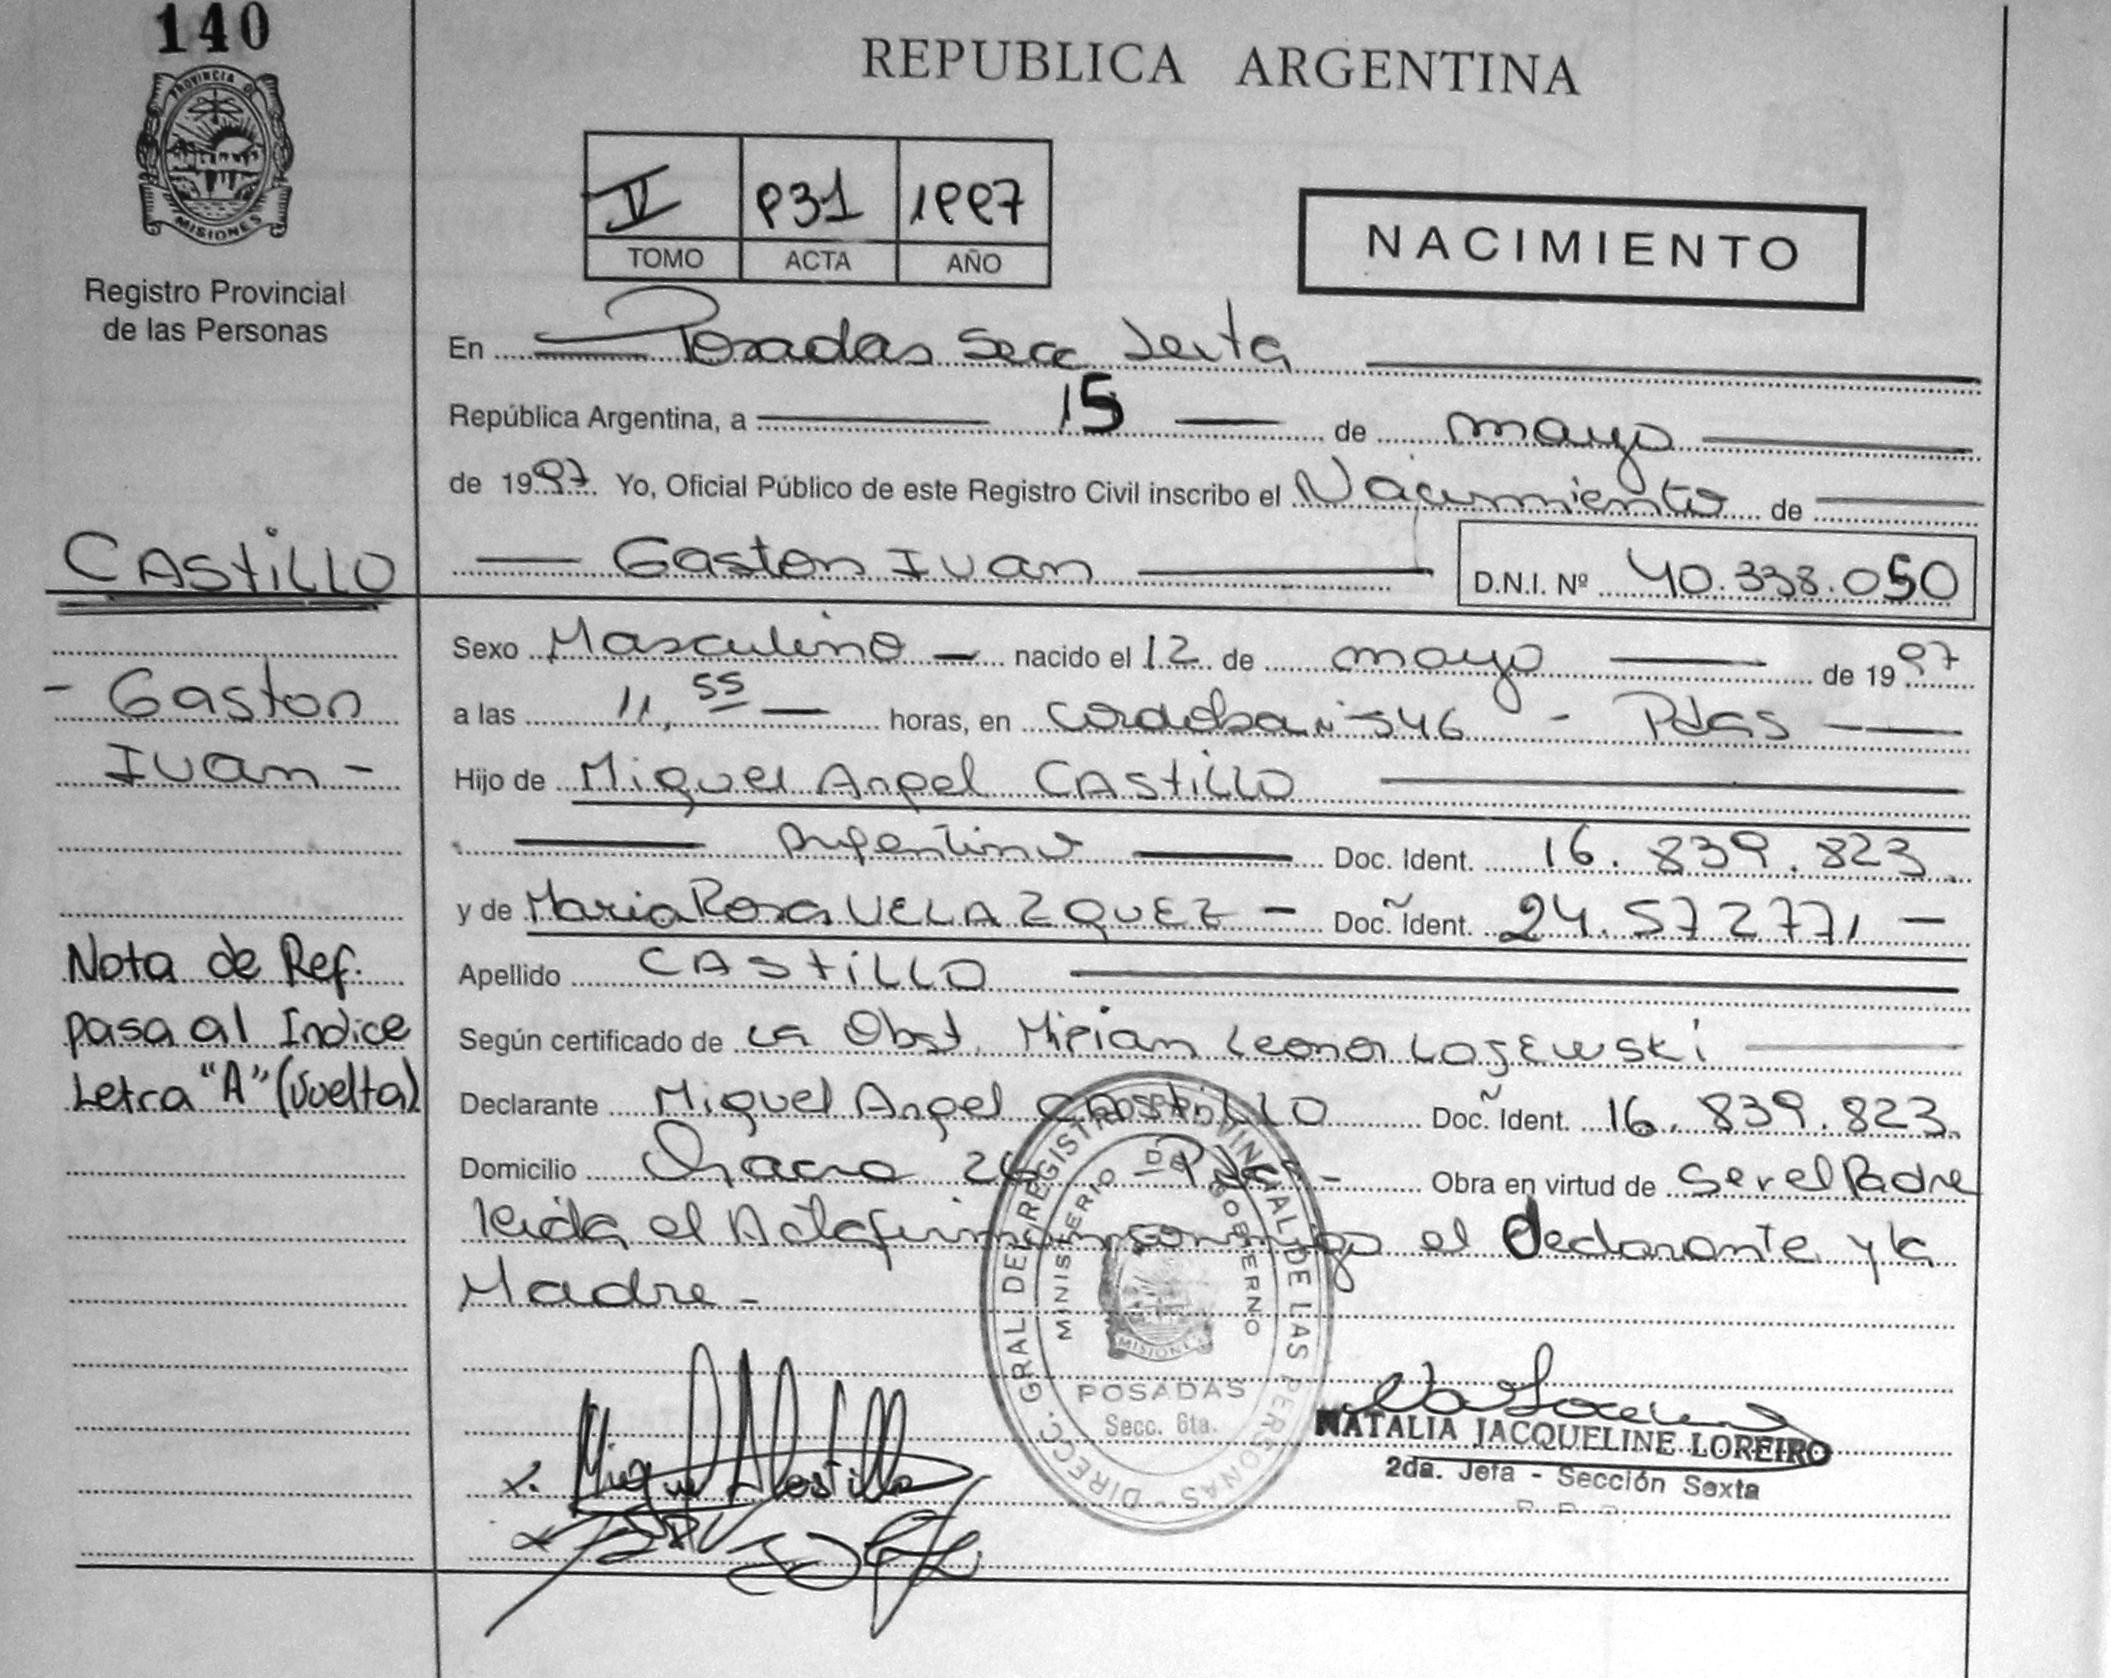 140
PROVINCIA D
MISIONES
Registro Provincial
de las Personas
REPUBLICA ARGENTINA
II 931 1997
TOMO ACTA AÑO
NACIMIENTO
En Posadas Secc Sexta
República Argentina, a 15 de mayo
de 1997 Yo, Oficial Público de este Registro Civil inscribo el Nacimiento de
Gaston Ivan D.N.I. Nº 40.338.050
CASTILLO
Gaston
Ivan -
Nota de Ref.
pasa al Indice
Letra "A" (Vuelta)
Sexo Masculino nacido el 12 de mayo de 1997
a las 11,55 horas, en Cordoba nº 546 - Pdas
Hijo de Miguel Angel CASTILLO
Argentino Doc. Ident. 16.839.823
y de Maria Rosa VELAZQUEZ - Doc. Ident. 24.572771 -
Apellido CASTILLO
Según certificado de la Obst. Mirian Leonor Losewski
Declarante Miguel Angel CASTILLO Doc. Ident. 16.839.823
Domicilio Chacra 26 - Pdas - Obra en virtud de ser el Padre
leida el Acta firman conmigo el declarante y la
Madre -
DIRECC. GRAL. DEL REGISTRO PROVINCIAL DE LAS PERSONAS
MINISTERIO DE GOBIERNO
MISIONES
POSADAS
Secc. 6ta.
NATALIA JACQUELINE LOREIRO
2da. Jefa - Sección Sexta